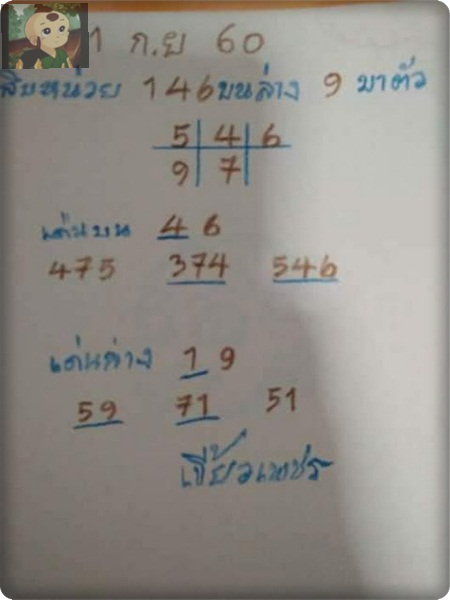 1 ก.ย 60
สิบหน่วย 146 บนล่าง 9 มาตัว
5 4 6
9 7
เด่นบน 4 6
475 374 546
เด่นล่าง 1 9
59 71 51
เขี้ยวเพชร